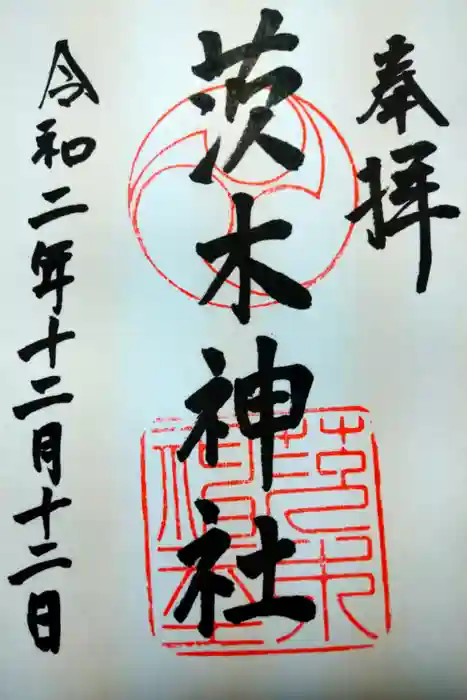 奉拝
茨木神社
令和二年十二月十二日
茨木
神社